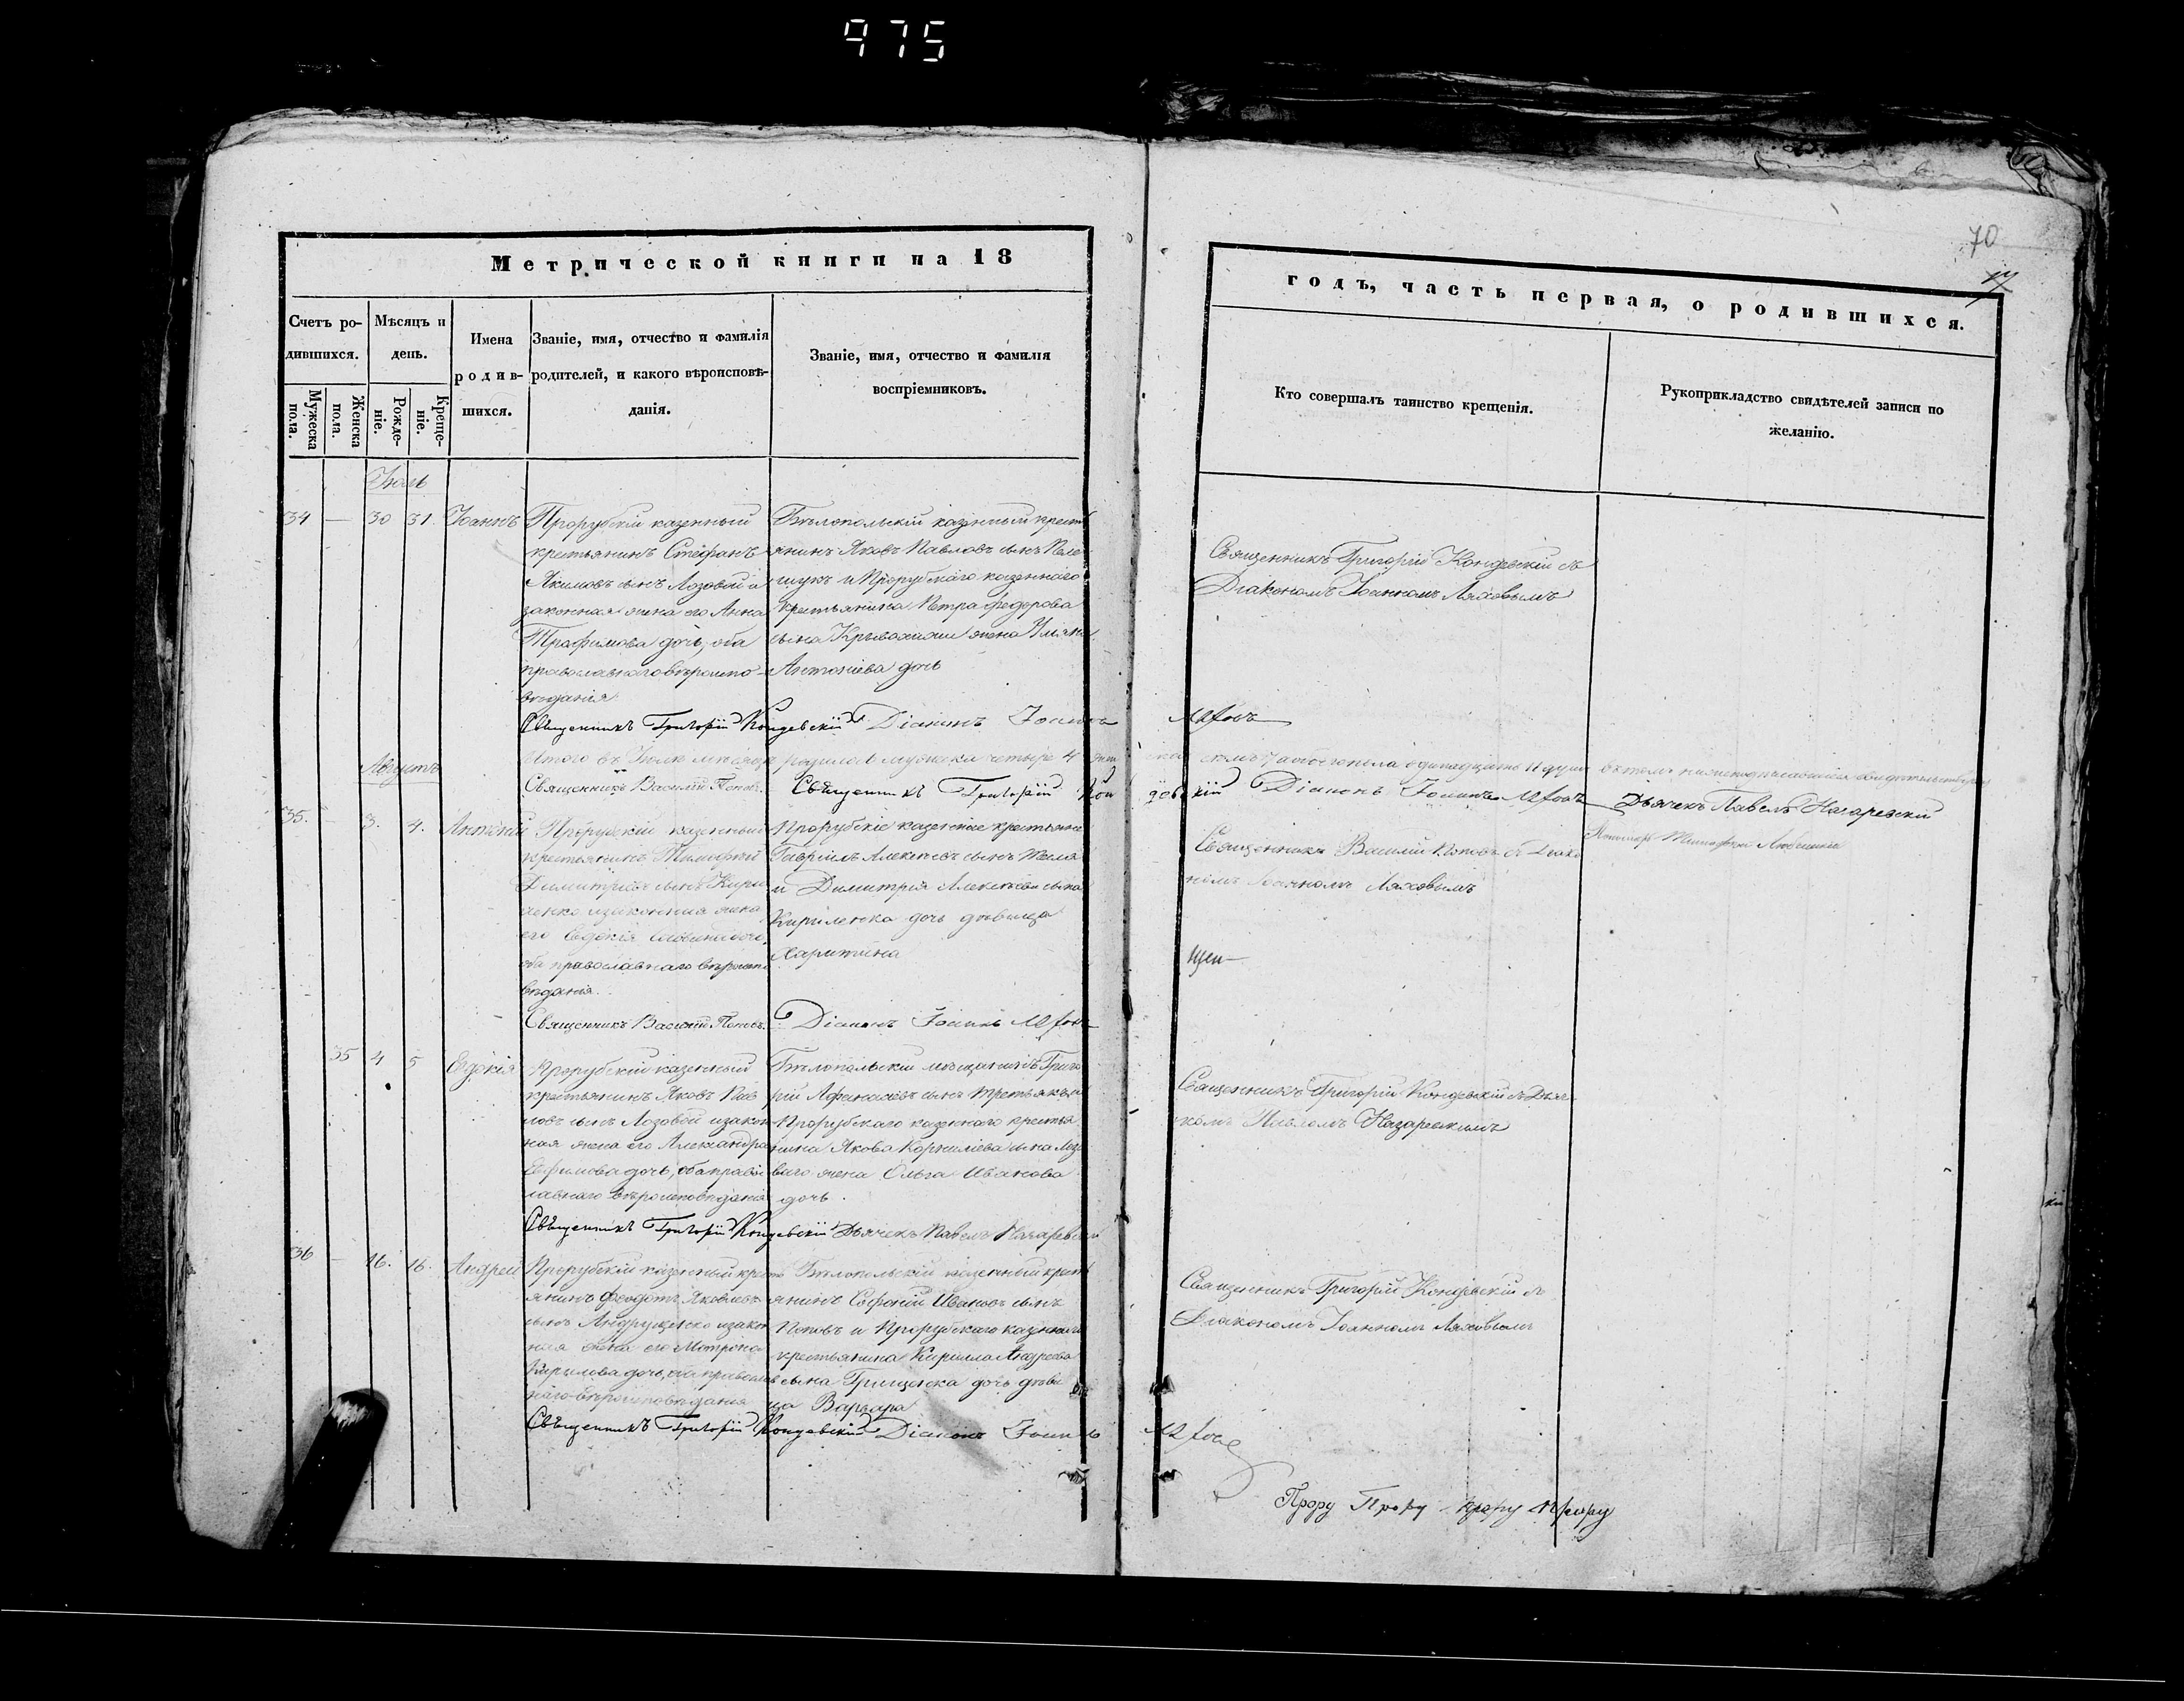 975
70
Метрической книги на 18
годъ, часть первая, о родившихся.
Счетъ ро-
дившихся.
Мужеска
пола.
Женска
пола.
Мѣсяцъ и
день.
Рожде-
ніе.
Креще-
ніе.
Имена
родив-
шихся.
Званіе, имя, отчество и фамилія
родителей, и какого вѣроисповѣ-
данія.
Званіе, имя, отчество и фамилія
воспріемниковъ.
Кто совершалъ таинство крещенія.
Рукоприкладство свидѣтелей записи по
желанію.
Іюль
34 — 30 31. Іоаннъ
Прорубскій казенный
крестьянинъ Стефанъ
Якимовъ сынъ Лозовой и
законная жена его Анна
Трофимова дочь, оба
православнаго вѣроиспо-
вѣданія
Бѣлопольскій казенный крестъ
янинъ Яковъ Павловъ сынъ
и Прорубскаго казеннаго
крестьянина Петра Федорова
сына жена
Антоніева дочь
Священникъ Григорій Кондевскій съ
Діакономъ Іоанномъ Ляховымъ
Священникъ Григорій Кондевскій Діаконъ Іоаннъ Ляховъ
Итого въ Іюлѣ мѣсяцѣ родилось мужеска четыре 4 семь 7 а обоего пола одинадцать 11 душъ
Августъ
Священникъ Василій Поповъ. Священникъ Григорій Кондевскій Діаконъ Іоаннъ Ляховъ Дьячекъ Павелъ Назаревскій
Пономарь
35. — 3. 4. Антоній
Прорубскій казенный
крестьянинъ Тимофей
Димитріевъ сынъ Кири
ленко и законная жена
его Евдокія дочь,
оба православнаго вѣроиспо
вѣданія.
Прорубскіе казенные крестьяне
Гавріилъ Алексѣевъ сынъ
и Димитрія Алексѣева сына
Кириленка дочь дѣвица
Харитина
Священникъ Василій Поповъ съ Діако
номъ Іоанномъ Ляховымъ
Священникъ Василій Поповъ. Діаконъ Іоаннъ Ляховъ
35 4 5 Евдокія
Прорубскій казенный
крестьянинъ Яковъ Пав
ловъ сынъ Лозовой и закон
ная жена его Александра
Евфимова дочь, оба правос
лавнаго вѣроисповѣданія
Бѣлопольскій мѣщанинъ Григо
рій Афанасіевъ сынъ Третьякъ и
Прорубскаго казеннаго крестья
нина Якова Корниліева сына Лозо
ваго жена Ольга Иванова
дочь.
Священникъ Григорій Кондевскій съ Дьяч
комъ Павломъ Назаревскимъ
Священникъ Григорій Кондевскій Дьячекъ Павелъ Назаревскій
36 — 16. 16. Андрей
Прорубскій казенный крест
янинъ Феодотъ Яковлевъ
сынъ Андрущенко и закон
ная жена его Матрона
Кирилова дочь, оба православ
наго вѣроисповѣданія
Бѣлопольскій казенный крестъ
янинъ Софоній Ивановъ сынъ
Поповъ и Прорубскаго казеннаго
крестьянина Кирилла Андреева
сына Грищенка дочь дѣви
ца Варвара
Священникъ Григорій Кондевскій съ
Діакономъ Іоанномъ Ляховымъ
Священникъ Григорій Кондевскій Діаконъ Іоаннъ Ляховъ
Прору Прору Прору Прору